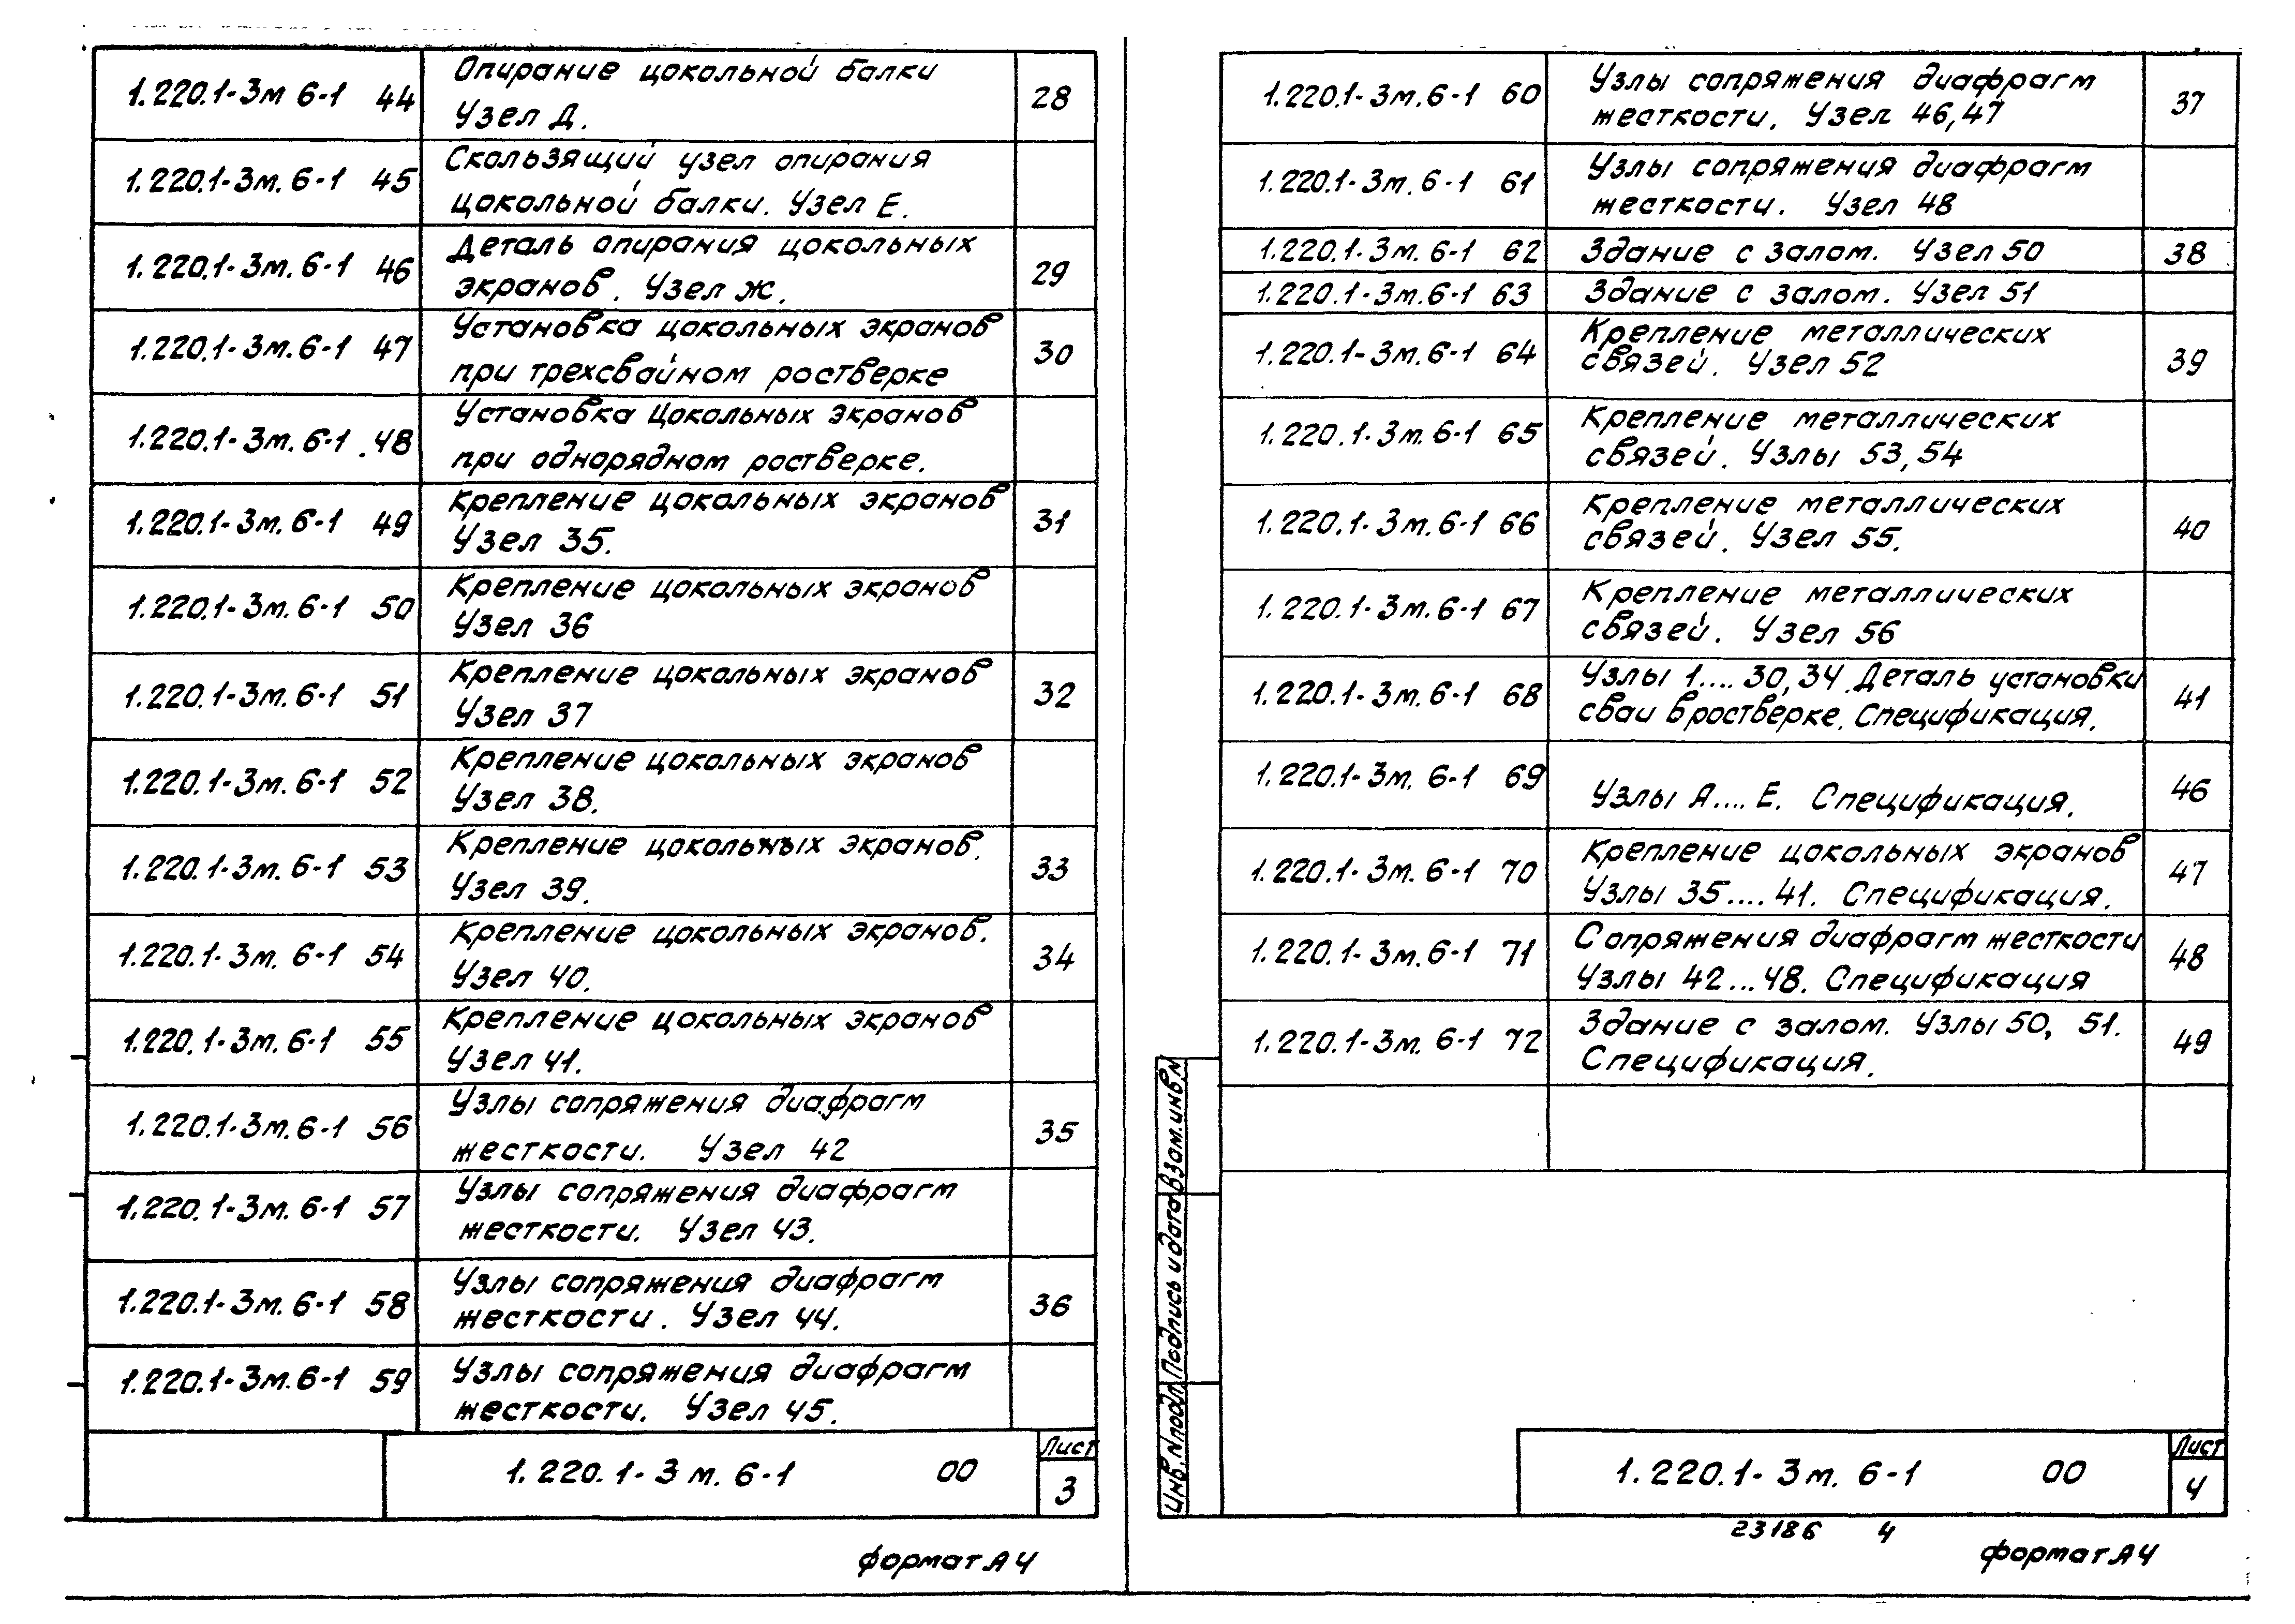 1.220.1-3м 6-1 44 Опирание цокольной балки 28
Узел Д.
1.220.1-3м. 6-1 45 Скользящий узел опирания
цокольной балки. Узел Е.
1.220.1-3м. 6-1 46 Деталь опирания цокольных 29
экранов. Узел Ж.
1.220.1-3м. 6-1 47 Установка цокольных экранов 30
при трехсвайном ростверке
1.220.1-3м. 6-1 48 Установка цокольных экранов
при однорядном ростверке.
1.220.1-3м. 6-1 49 Крепление цокольных экранов 31
Узел 35.
1.220.1-3м. 6-1 50 Крепление цокольных экранов
Узел 36
1.220.1-3м. 6-1 51 Крепление цокольных экранов 32
Узел 37
1.220.1-3м. 6-1 52 Крепление цокольных экранов
Узел 38.
1.220.1-3м. 6-1 53 Крепление цокольных экранов. 33
Узел 39.
1.220.1-3м. 6-1 54 Крепление цокольных экранов. 34
Узел 40.
1.220.1-3м. 6-1 55 Крепление цокольных экранов
Узел 41.
1.220.1-3м. 6-1 56 Узлы сопряжения диафрагм 35
жесткости. Узел 42
1.220.1-3м. 6-1 57 Узлы сопряжения диафрагм
жесткости. Узел 43.
1.220.1-3м. 6-1 58 Узлы сопряжения диафрагм 36
жесткости. Узел 44.
1.220.1-3м. 6-1 59 Узлы сопряжения диафрагм
жесткости. Узел 45.
1.220.1-3м. 6-1 00 Лист
3
формат А4
1.220.1-3м. 6-1 60 Узлы сопряжения диафрагм 37
жесткости. Узел 46,47
1.220.1-3м. 6-1 61 Узлы сопряжения диафрагм
жесткости. Узел 48
1.220.1-3м. 6-1 62 Здание с залом. Узел 50 38
1.220.1-3м. 6-1 63 Здание с залом. Узел 51
1.220.1-3м. 6-1 64 Крепление металлических 39
связей. Узел 52
1.220.1-3м. 6-1 65 Крепление металлических
связей. Узлы 53,54
1.220.1-3м. 6-1 66 Крепление металлических 40
связей. Узел 55.
1.220.1-3м. 6-1 67 Крепление металлических
связей. Узел 56
1.220.1-3м. 6-1 68 Узлы 1....30,34. Деталь установки 41
сваи в ростверке. Спецификация.
1.220.1-3м. 6-1 69 Узлы А....Е. Спецификация. 46
1.220.1-3м. 6-1 70 Крепление цокольных экранов 47
Узлы 35....41. Спецификация.
1.220.1-3м. 6-1 71 Сопряжения диафрагм жесткости 48
Узлы 42...48. Спецификация
1.220.1-3м. 6-1 72 Здание с залом. Узлы 50, 51. 49
Спецификация.
Инв. N подл. Подпись и дата Взам. инв N
1.220.1-3м. 6-1 00 Лист
4
23186 4
формат А4